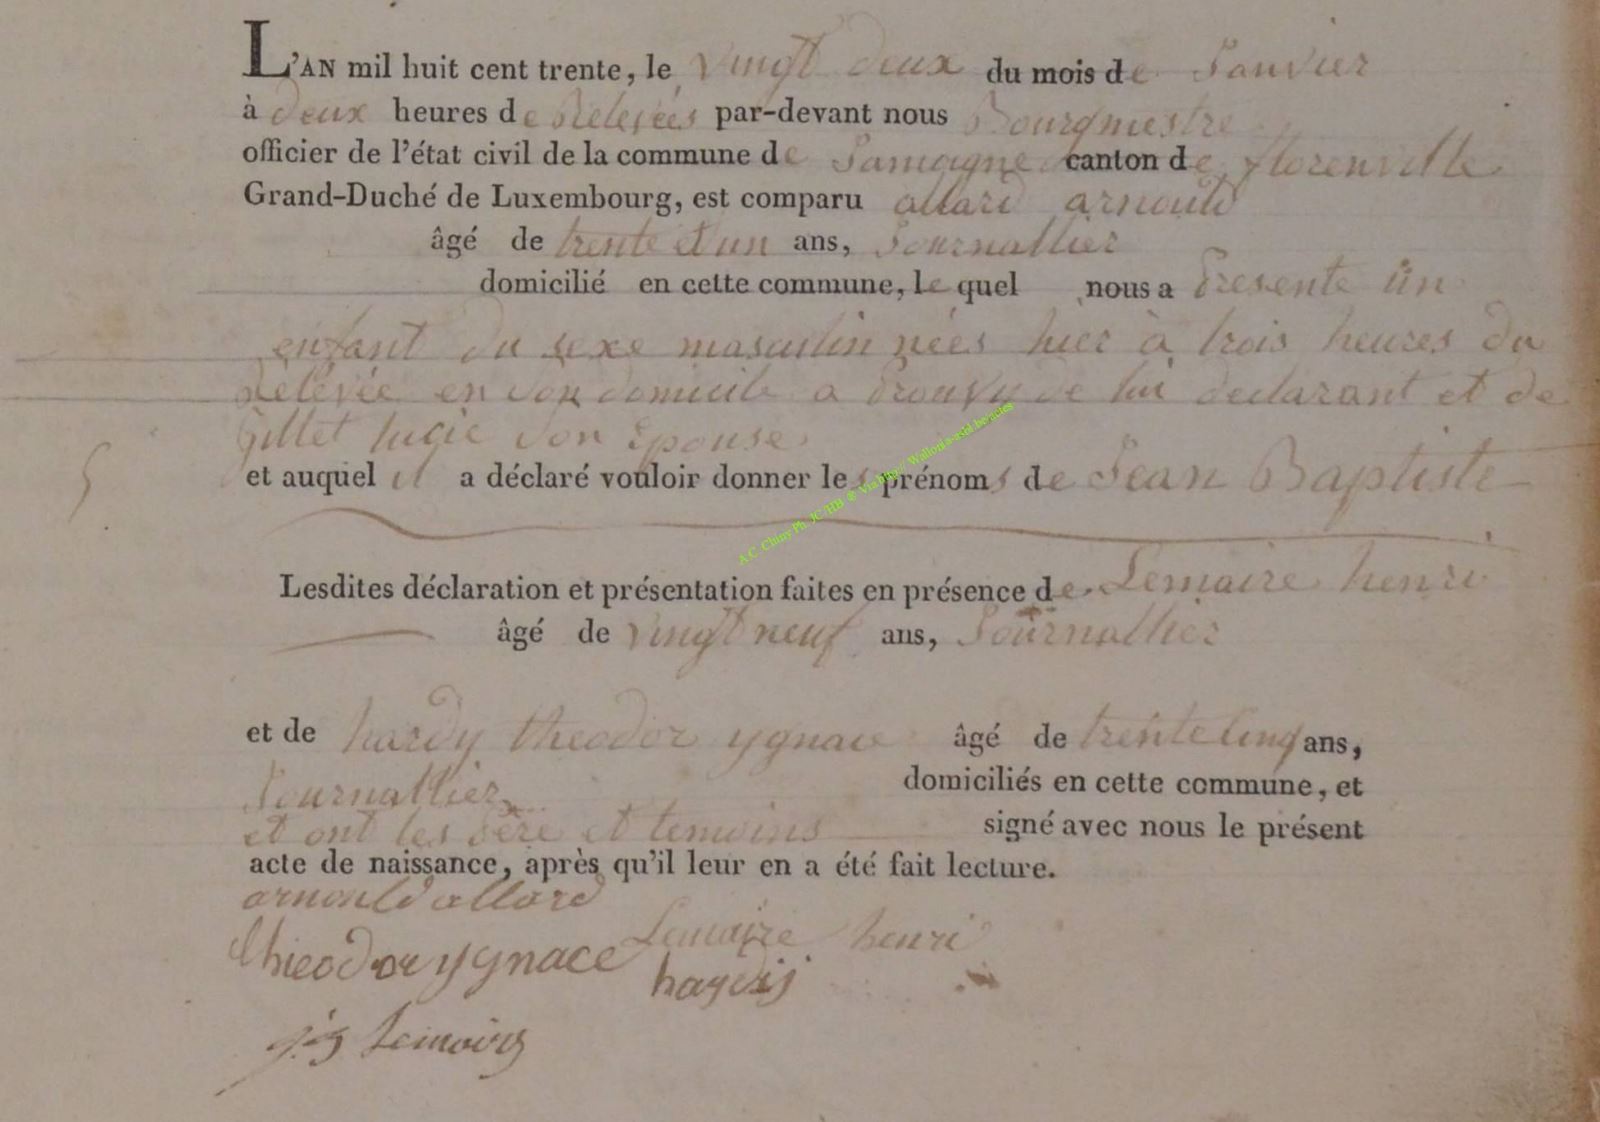 L'AN mil huit cent trente, le vingt deux du mois de Janvier
à deux heures de Relevées par-devant nous Bourgmestre
officier de l'état civil de la commune de Jamoigne canton de florenville
Grand-Duché de Luxembourg, est comparu allard arnould
âgé de trente et un ans, Journallier
domicilié en cette commune, le quel nous a Presente un
enfant du sexe masculin nées hier à trois heures du
Relevée en son domicile a Prouvy de lui declarant et de
Gillet lucie son Epouse
5 et auquel il a déclaré vouloir donner les prénoms de Jean Baptiste
A.C. Chiny Ph. JC/HB © Via http:// Wallonia-asbl.be/actes
Lesdites déclaration et présentation faites en présence de Lemaire henri
âgé de vingt neuf ans, Journallier
et de hardy theodor ygnace âgé de trente Cinq ans,
Journallier domiciliés en cette commune, et
et ont les Père et temoins signé avec nous le présent
acte de naissance, après qu'il leur en a été fait lecture.
arnould allard
Lemaire henri
thieodor ygnace hardij